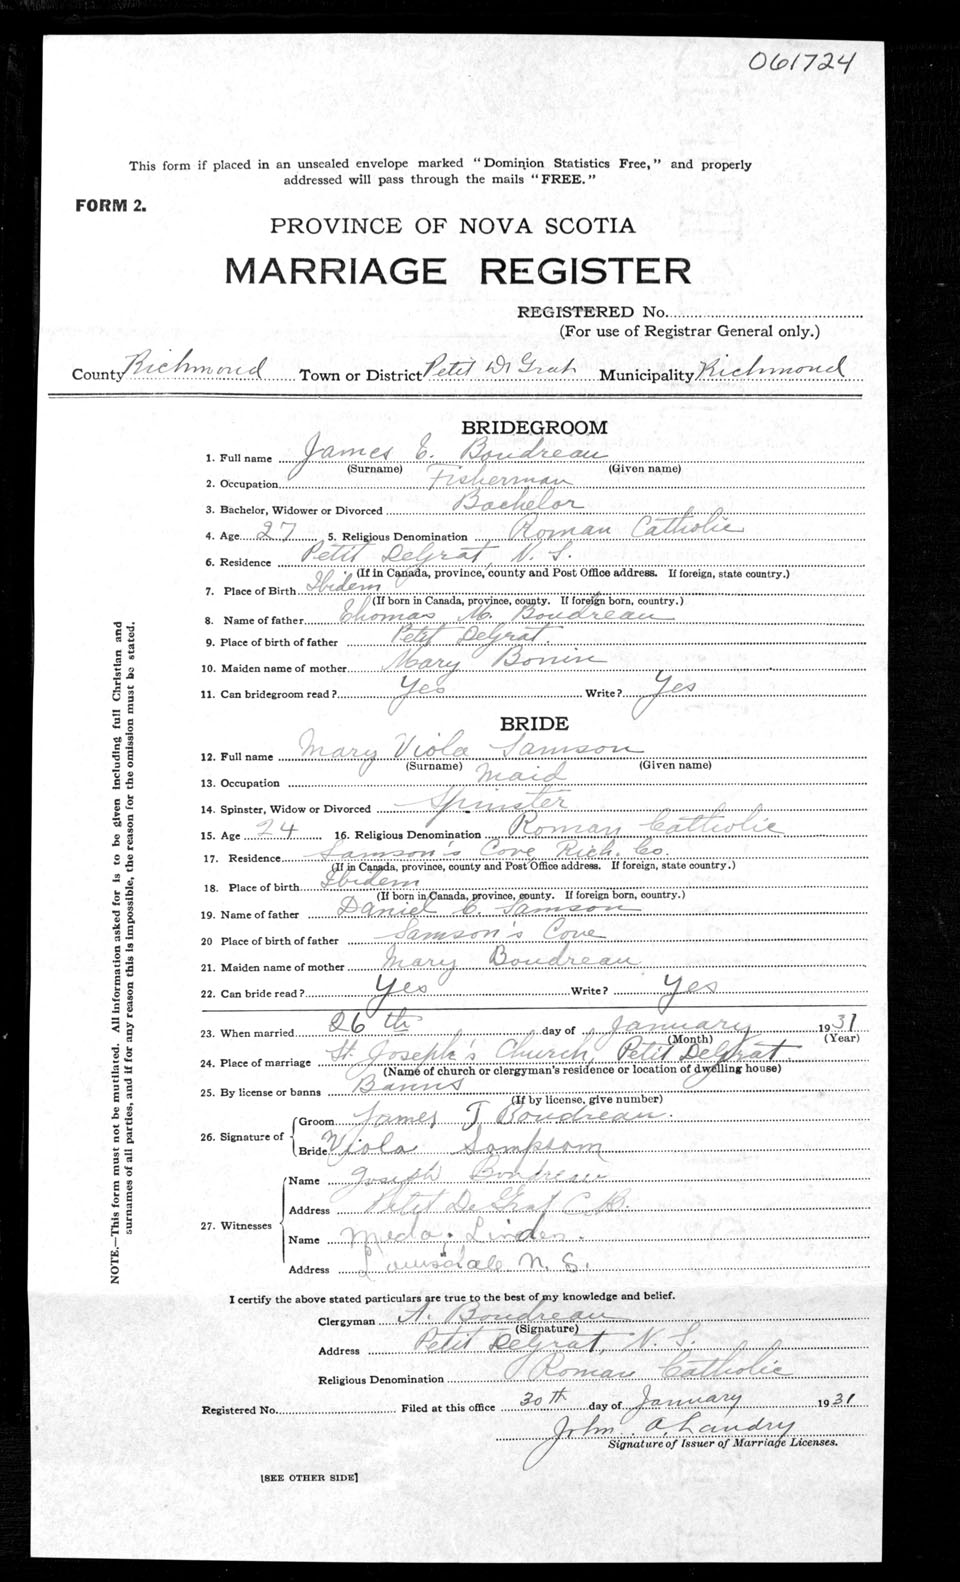 061724
This form if placed in an unsealed envelope marked "Dominion Statistics Free," and properly
addressed will pass through the mails "FREE."
FORM 2.
PROVINCE OF NOVA SCOTIA
MARRIAGE REGISTER
REGISTERED No.
(For use of Registrar General only.)
County Richmond Town or District Petit De Grat Municipality Richmond
BRIDEGROOM
1. Full name James E. Boudreau
(Surname) (Given name)
2. Occupation Fisherman
3. Bachelor, Widower or Divorced Bachelor
4. Age 27 5. Religious Denomination Roman Catholic
6. Residence Petit DeGrat, N. S.
(If in Canada, province, county and Post Office address. If foreign, state country.)
7. Place of Birth Ibidem
(If born in Canada, province, county. If foreign born, country.)
8. Name of father Thomas M. Boudreau
9. Place of birth of father Petit DeGrat.
10. Maiden name of mother Mary Bonin
11. Can bridegroom read? Yes Write? Yes
BRIDE
12. Full name Mary Viola Samson
(Surname) (Given name)
13. Occupation Maid
14. Spinster, Widow or Divorced Spinster
15. Age 24 16. Religious Denomination Roman Catholic
17. Residence Samson's Cove Rich. Co.
(If in Canada, province, county and Post Office address. If foreign, state country.)
18. Place of birth Ibidem
(If born in Canada, province, county. If foreign born, country.)
19. Name of father Daniel C. Samson
20 Place of birth of father Samson's Cove
21. Maiden name of mother Mary Boudreau
22. Can bride read? Yes Write? Yes
23. When married 26th day of January 1931
(Month) (Year)
24. Place of marriage St. Joseph's Church, Petit DeGrat.
(Name of church or clergyman's residence or location of dwelling house)
25. By license or banns Banns
(If by license, give number)
26. Signature of
Groom James J Boudreau.
Bride Viola Sampsom
27. Witnesses
Name Joseph Boudreau
Address Petit De Grat C.B.
Name Meda. Linden.
Address Louisdale N. S.
I certify the above stated particulars are true to the best of my knowledge and belief.
Clergyman A. Boudreau
(Signature)
Address Petit DeGrat, N. S.
Religious Denomination Roman Catholic
Registered No. Filed at this office 30th day of January 1931
John A. Landry
Signature of Issuer of Marriage Licenses.
[SEE OTHER SIDE]
NOTE.—This form must not be mutilated. All information asked for is to be given including full Christian and
surnames of all parties, and if for any reason this is impossible, the reason for the omission must be stated.